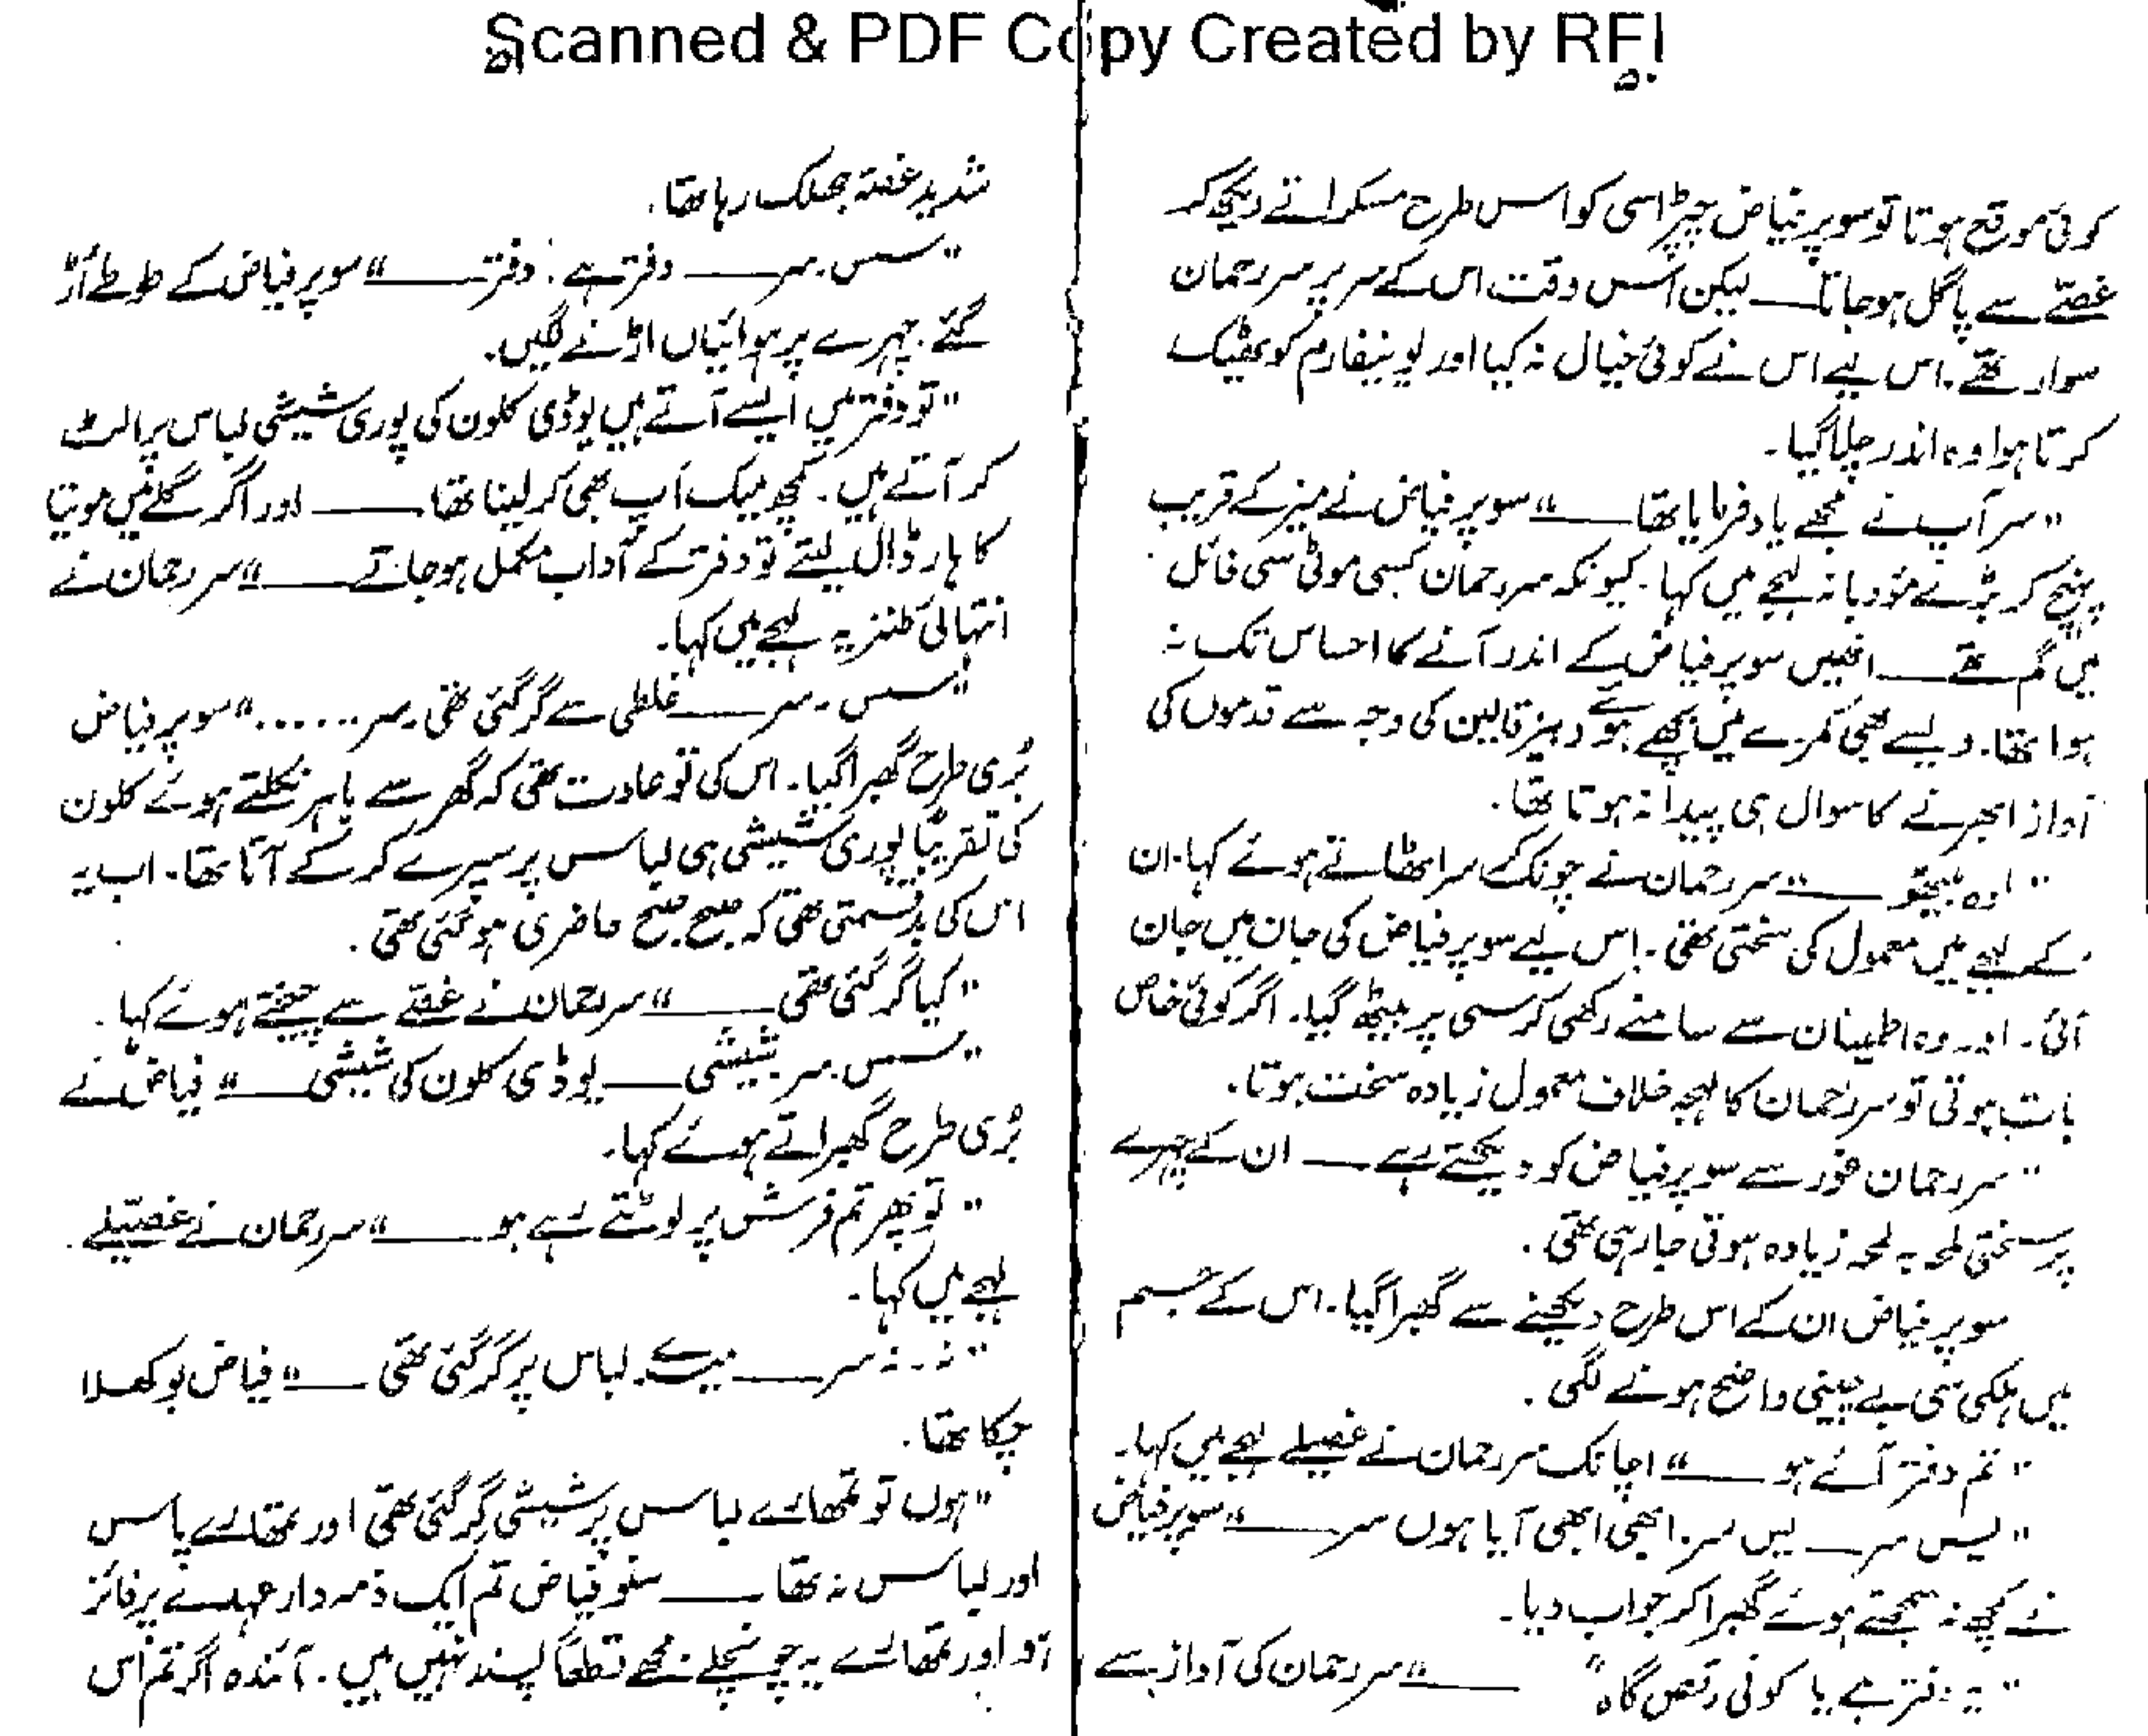 Scanned & PDF Copy Created by RFI
کوئی موقع ہوتا تو سوپر فیاض چپڑاسی کو اس طرح مسکراتے دیکھ کر
غصّے سے پاگل ہو جاتا۔ لیکن اس وقت اس کے سر پر سر رحمان
سوار تھے۔ اس لیے اس نے کوئی خیال نہ کیا اور یونیفارم کو ٹھیک
کرتا ہوا وہ اندر چلا گیا۔
"سر آپ نے مجھے یاد فرمایا تھا ــــ" سوپر فیاض نے میز کے قریب
پہنچ کر بڑے مؤدبانہ لہجے میں کہا۔ کیونکہ سر رحمان کسی موٹی سی فائل
میں گم تھے ــــ انھیں سوپر فیاض کے اندر آنے کا احساس تک نہ
ہوا تھا۔ ویسے بھی کمرے میں بچھے ہوئے دبیز قالین کی وجہ سے قدموں کی
آواز ابھرنے کا سوال ہی پیدا نہ ہوتا تھا۔
"اوہ بیٹھو ــــ" سر رحمان نے چونک کر سر اٹھاتے ہوئے کہا۔ ان
کے لہجے میں معمول کی سختی تھی۔ اس لیے سوپر فیاض کی جان میں جان
آئی۔ اور وہ اطمینان سے سامنے رکھی کرسی پر بیٹھ گیا۔ اگر کوئی خاص
بات ہوتی تو سر رحمان کا لہجہ خلاف معمول زیادہ سخت ہوتا۔
"سر رحمان غور سے سوپر فیاض کو دیکھتے رہے ــــ ان کے چہرے
پر سختی لمحہ بہ لمحہ زیادہ ہوتی جا رہی تھی۔
سوپر فیاض ان کے اس طرح دیکھنے سے گھبرا گیا۔ اس کے جسم
میں ہلکی سی بے چینی واضح ہونے لگی۔
"تم دفتر آئے ہو ــــ" اچانک سر رحمان نے غصیلے لہجے میں کہا۔
"لیس سر ــــ یس سر۔ ابھی ابھی آیا ہوں سر ــــ" سوپر فیاض
نے کچھ نہ سمجھتے ہوئے گھبرا کر جواب دیا۔
"یہ دفتر ہے یا کوئی رقص گاہ" ــــ" سر رحمان کی آواز سے
شدید غصّہ جھلک رہا تھا۔
"سس۔ سر ــــ دفتر ہے۔ دفتر ــــ" سوپر فیاض کے طوطے اڑ
گئے۔ چہرے پر ہوائیاں اڑنے لگیں۔
"تو دفتر میں ایسے آتے ہیں یوڈی کلون کی پوری شیشی لباس پر الٹ
کر آتے ہیں۔ کچھ میک اَپ بھی کر لینا تھا ــــ اور اگر گلے میں موتیا
کا ہار ڈال لیتے تو دفتر کے آداب مکمل ہو جاتے ــــ" سر رحمان نے
انتہائی طنزیہ لہجے میں کہا۔
"سس۔ سر ــــ غلطی سے گر گئی تھی۔ سر ......" سوپر فیاض
بُری طرح گھبرا گیا۔ اس کی تو عادت تھی کہ گھر سے باہر نکلتے ہوئے کلون
کی تقریباً پوری شیشی ہی لباس پر سپرے کر کے آتا تھا۔ اب یہ
اس کی بدقسمتی تھی کہ صبح صبح حاضری ہو گئی تھی۔
"کیا گر گئی تھی ــــ" سر رحمان نے غصّے سے چیختے ہوئے کہا۔
"سس۔ سر شیشی ــــ یوڈی کلون کی شیشی ــــ" فیاض نے
بُری طرح گھبراتے ہوئے کہا۔
"تو پھر تم فرش پر لوٹتے رہے ہو ــــ" سر رحمان نے غصیلے
لہجے میں کہا۔
"نہ۔ نہ سر ــــ میرے لباس پر گر گئی تھی ــــ" فیاض بوکھلا
چکا تھا۔
"ہوں تو تمھارے لباس پر شیشی گر گئی تھی اور تمھارے پاس
اور لباس نہ تھا ــــ سنو فیاض تم ایک ذمہ دار عہدے پر فائز
ہو اور تمھارے یہ چونچلے مجھے قطعاً پسند نہیں ہیں۔ آئندہ اگر تم اس